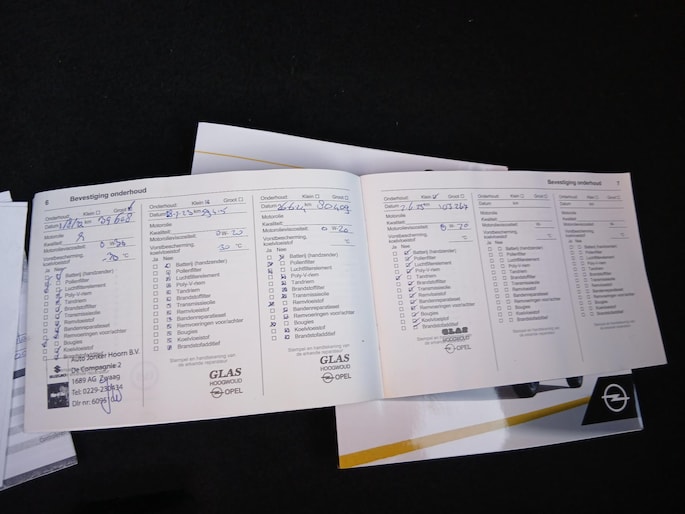 6
Bevestiging onderhoud
Onderhoud: Klein Groot
Datum km 39608
Motorolie
Kwaliteit:
Motorolieviscositeit: 0 w
Vorstbescherming,
koelvloeistof -30 °C
Ja Nee
Batterij (handzender)
Pollenfilter
Luchtfilterelement
Poly-V-riem
Tandriem
Brandstoffilter
Transmissieolie
Remvloeistof
Bandenreparatieset
Remvoeringen voor/achter
Bougies
Koelvloeistof
Brandstofadditief
Auto Jonker Hoorn B.V.
De Compagnie 2
1689 AG Zwaag
Tel: 0229-230434
Dlr nr: 6096
Onderhoud: Klein Groot
Datum km
Motorolie
Kwaliteit:
Motorolieviscositeit: 0 w 20
Vorstbescherming,
koelvloeistof -30 °C
Ja Nee
Batterij (handzender)
Pollenfilter
Luchtfilterelement
Poly-V-riem
Tandriem
Brandstoffilter
Transmissieolie
Remvloeistof
Bandenreparatieset
Remvoeringen voor/achter
Bougies
Koelvloeistof
Brandstofadditief
Stempel en handtekening van
de erkende reparateur
GLAS
HOOGWOUD
OPEL
Onderhoud: Klein Groot
Datum km 80409
Motorolie
Kwaliteit:
Motorolieviscositeit: 0 w 20
Vorstbescherming,
koelvloeistof °C
Ja Nee
Batterij (handzender)
Pollenfilter
Luchtfilterelement
Poly-V-riem
Tandriem
Brandstoffilter
Transmissieolie
Remvloeistof
Bandenreparatieset
Remvoeringen voor/achter
Bougies
Koelvloeistof
Brandstofadditief
Stempel en handtekening van
de erkende reparateur
GLAS
HOOGWOUD
OPEL
Bevestiging onderhoud
7
Onderhoud: Klein Groot
Datum km 103267
Motorolie
Kwaliteit:
Motorolieviscositeit: 0 w 20
Vorstbescherming,
koelvloeistof °C
Ja Nee
Batterij (handzender)
Pollenfilter
Luchtfilterelement
Poly-V-riem
Tandriem
Brandstoffilter
Transmissieolie
Remvloeistof
Bandenreparatieset
Remvoeringen voor/achter
Bougies
Koelvloeistof
Brandstofadditief
GLAS
HOOGWOUD
OPEL
Onderhoud: Klein Groot
Datum km
Motorolie
Kwaliteit:
Motorolieviscositeit: w
Vorstbescherming,
koelvloeistof °C
Ja Nee
Batterij (handzender)
Pollenfilter
Luchtfilterelement
Poly-V-riem
Tandriem
Brandstoffilter
Transmissieolie
Remvloeistof
Bandenreparatieset
Remvoeringen voor/achter
Bougies
Koelvloeistof
Brandstofadditief
Stempel en handtekening van
de erkende reparateur
Onderhoud: Klein Groot
Datum km
Motorolie
Kwaliteit:
Motorolieviscositeit: w
Vorstbescherming,
koelvloeistof °C
Ja Nee
Batterij (handzender)
Pollenfilter
Luchtfilterelement
Poly-V-riem
Tandriem
Brandstoffilter
Transmissieolie
Remvloeistof
Bandenreparatieset
Remvoeringen voor/achter
Bougies
Koelvloeistof
Brandstofadditief
Stempel en handtekening van
de erkende reparateur